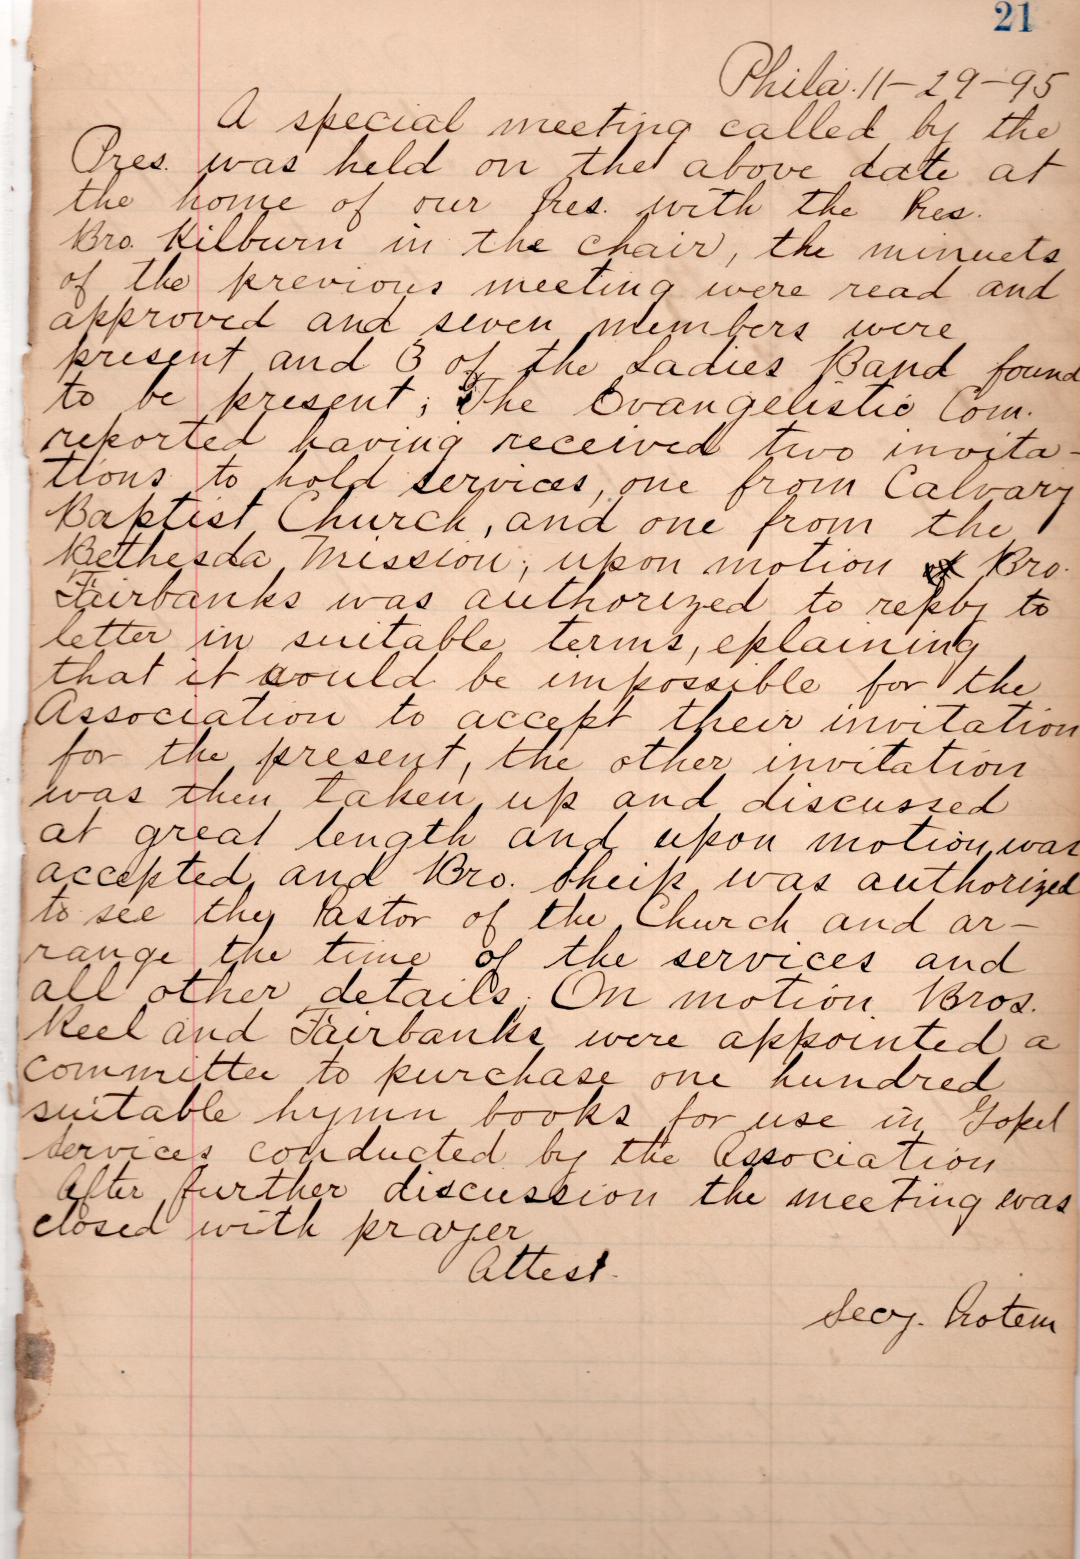 21
Phila. 11-29-95
A special meeting called by the
Pres. was held on the above date at
the home of our Pres. with the Pres.
Bro. Kilburn in the chair, the minuets
of the previous meeting were read and
approved and seven members were
present and 3 of the Ladies Band found
to be present; The Evangelistic Com.
reported having received two invita-
tions to hold services, one from Calvary
Baptist Church, and one from the
Bethesda Mission; upon motion Bro.
Fairbanks was authorized to reply to
letter in suitable terms, eplaining
that it would be impossible for the
Association to accept their invitation
for the present, the other invitation
was then taken up and discussed
at great length and upon motion was
accepted and Bro. Sheip was authorized
to see the Pastor of the Church and ar-
range the time of the services and
all other details; On motion Bros.
Keel and Fairbanks were appointed a
committee to purchase one hundred
suitable hymn books for use in Gopel
services conducted by the Association
After further discussion the meeting was
closed with prayer
Attest.
Secy. Protem